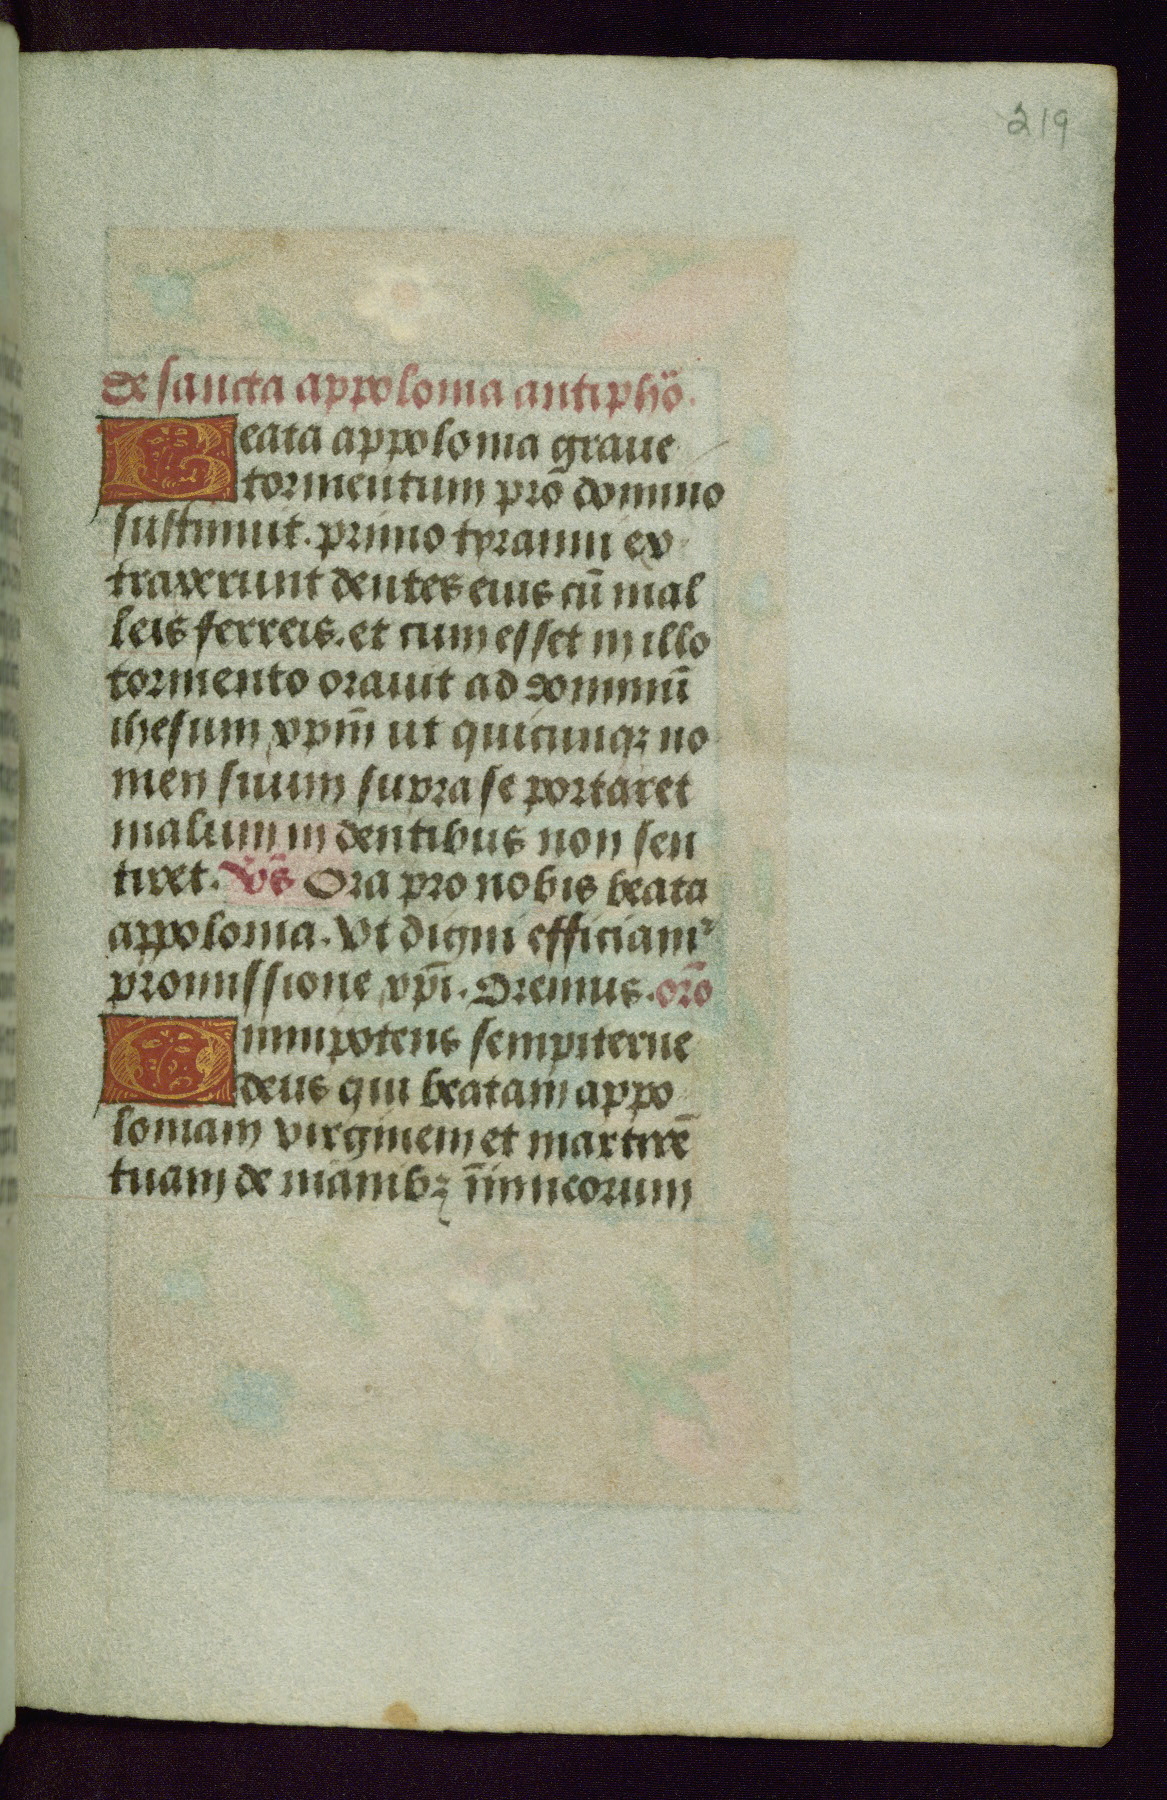 219
De sancta appolonia antiphõ.
Beata appolonia graue
tormentum pro domino
sustinuit. primo tyranni ex
traxerunt dentes eius cũ mal
leis ferreis. et cum esset in illo
tormento orauit ad dominũ
ihesum xpm̃ ut quicunqꝫ no
men suum supra se portaret
malum in dentibus non sen
tiret. Vs̃ Ora pro nobis beata
appolonia. Vt digni efficiamᷣ
promissione xpĩ. Oremus. orõ
Omnipotens sempiterne
deus qui beatam appo
loniam virginem et martirẽ
tuam de manibꝫ inimicorum